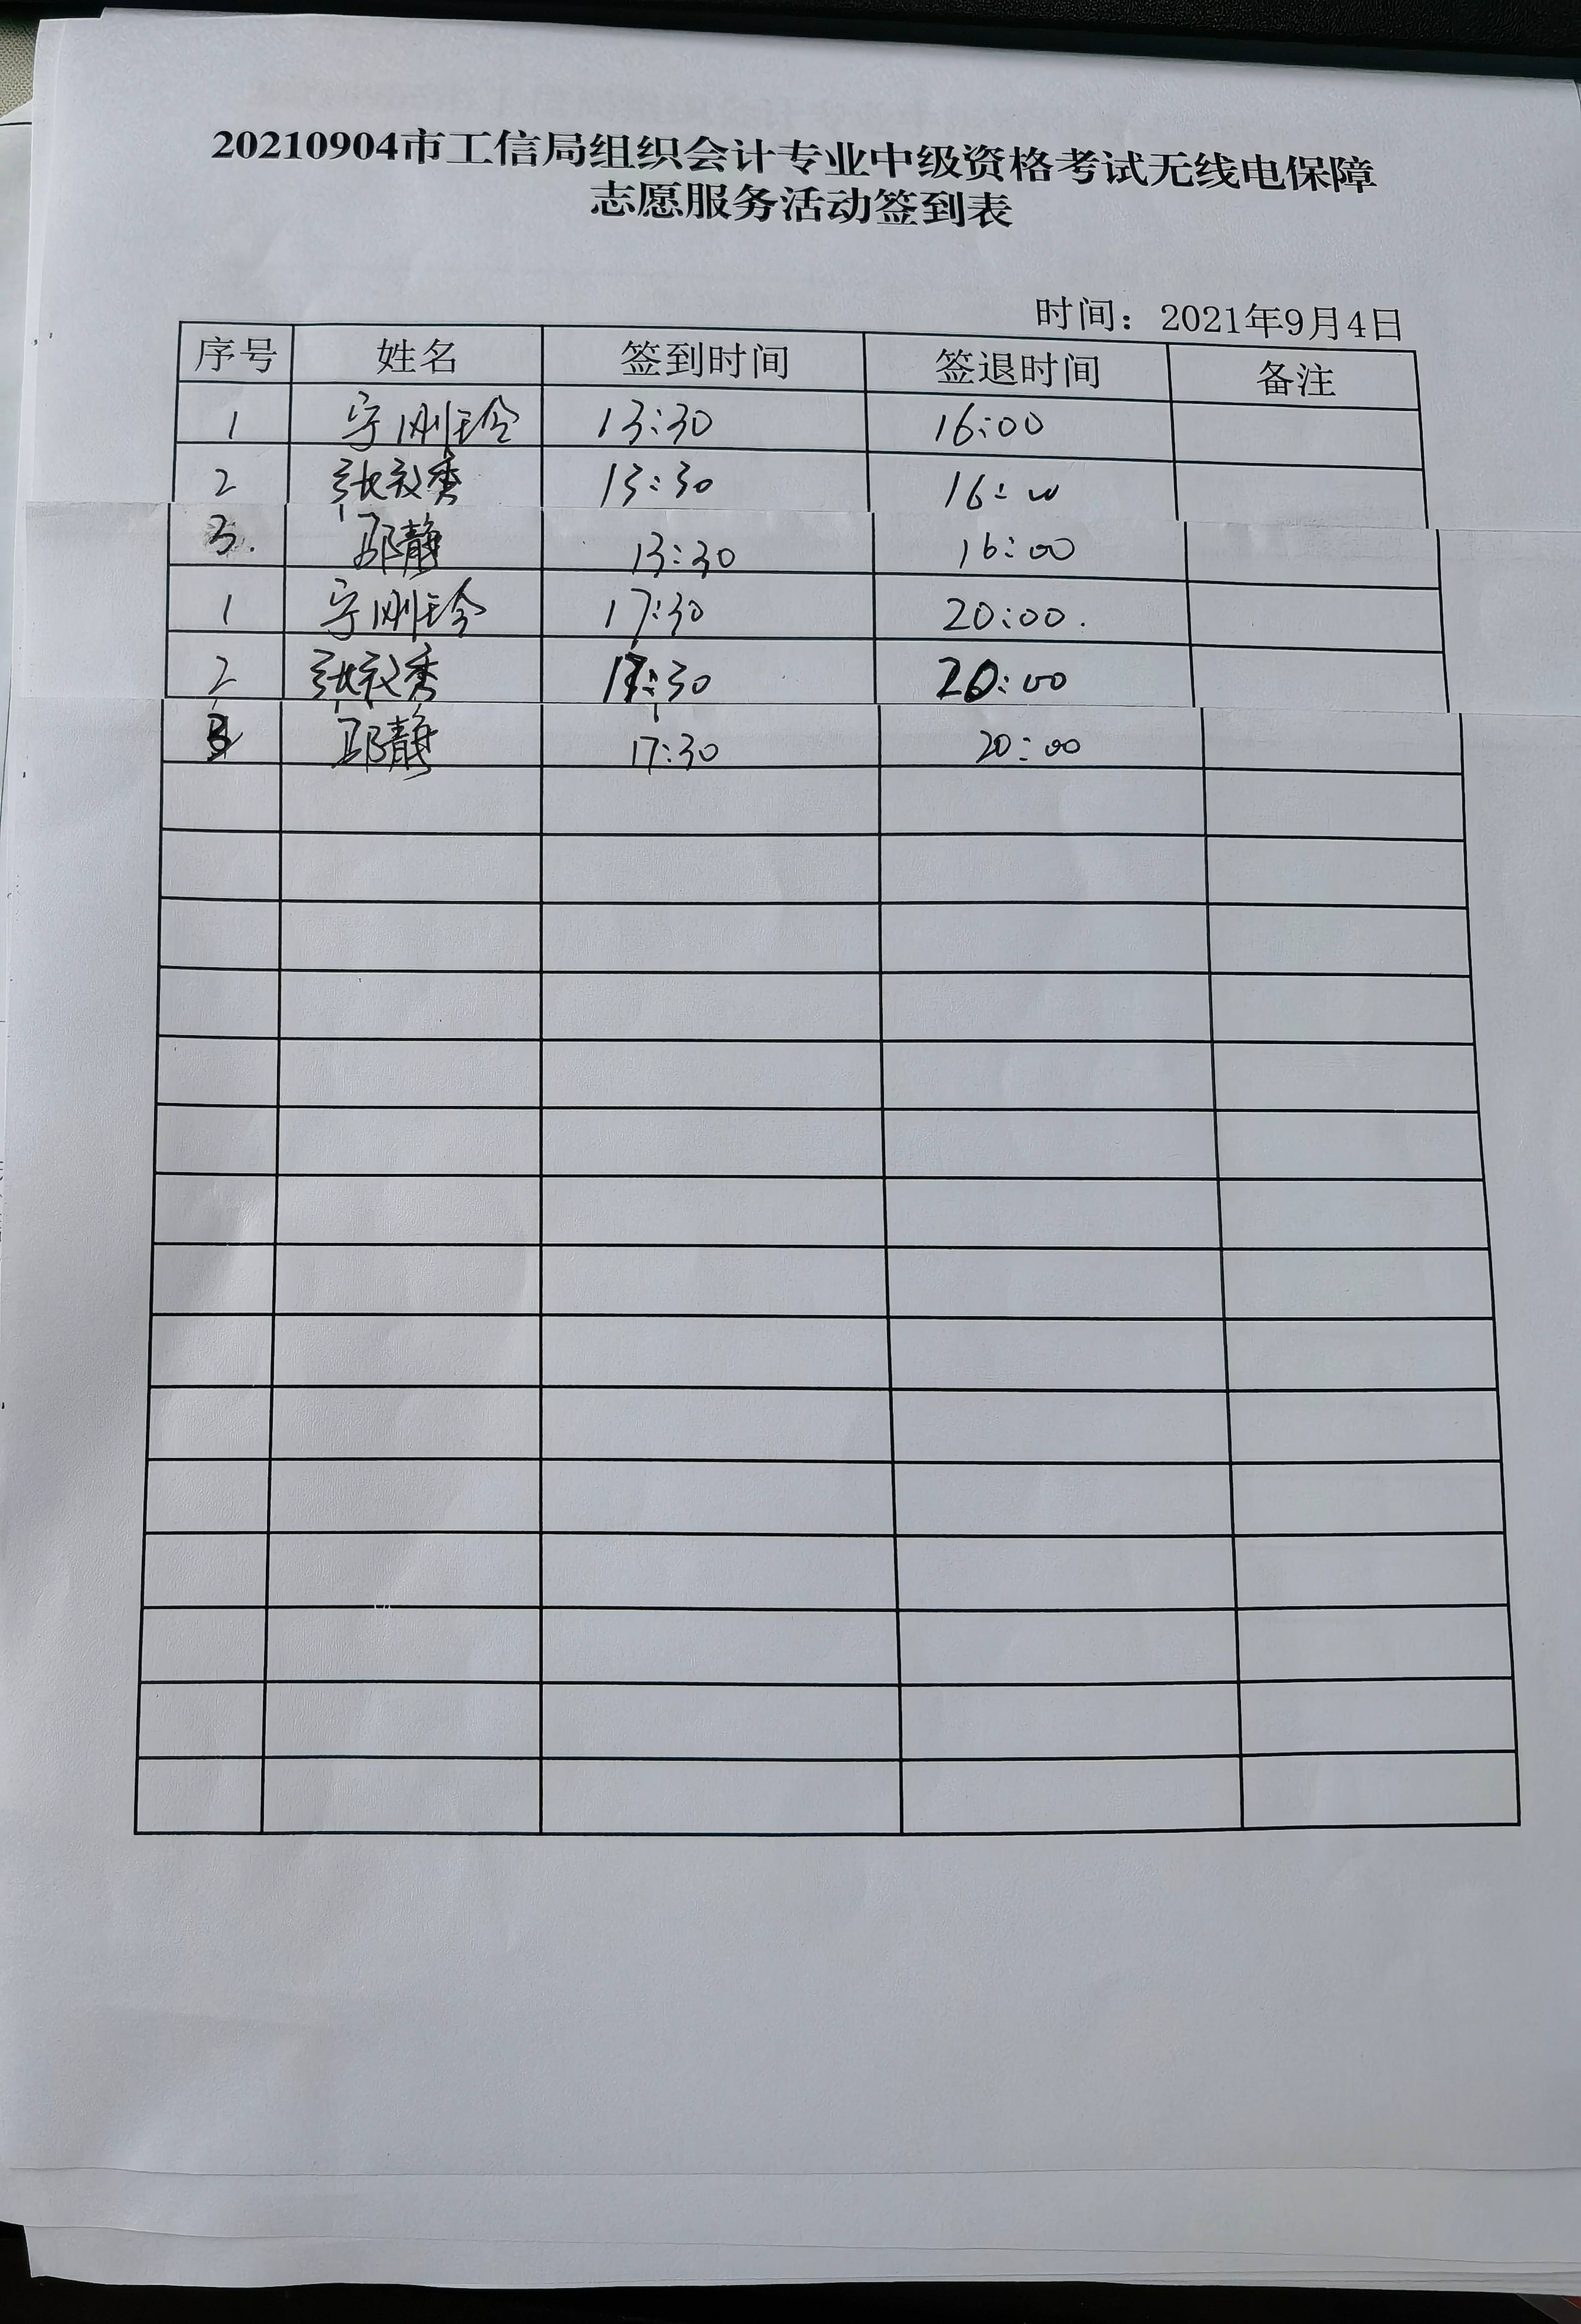 20210904市工信局组织会计专业中级资格考试无线电保障
志愿服务活动签到表
时间：2021年9月4日
序号 姓名 签到时间 签退时间 备注
1 宁刚玲 13:30 16:00
2 张秀 13:30 16:00
3. 邱静 13:30 16:00
1 宁刚玲 17:30 20:00.
2 张秀 17:30 20:00
3 邱静 17:30 20:00